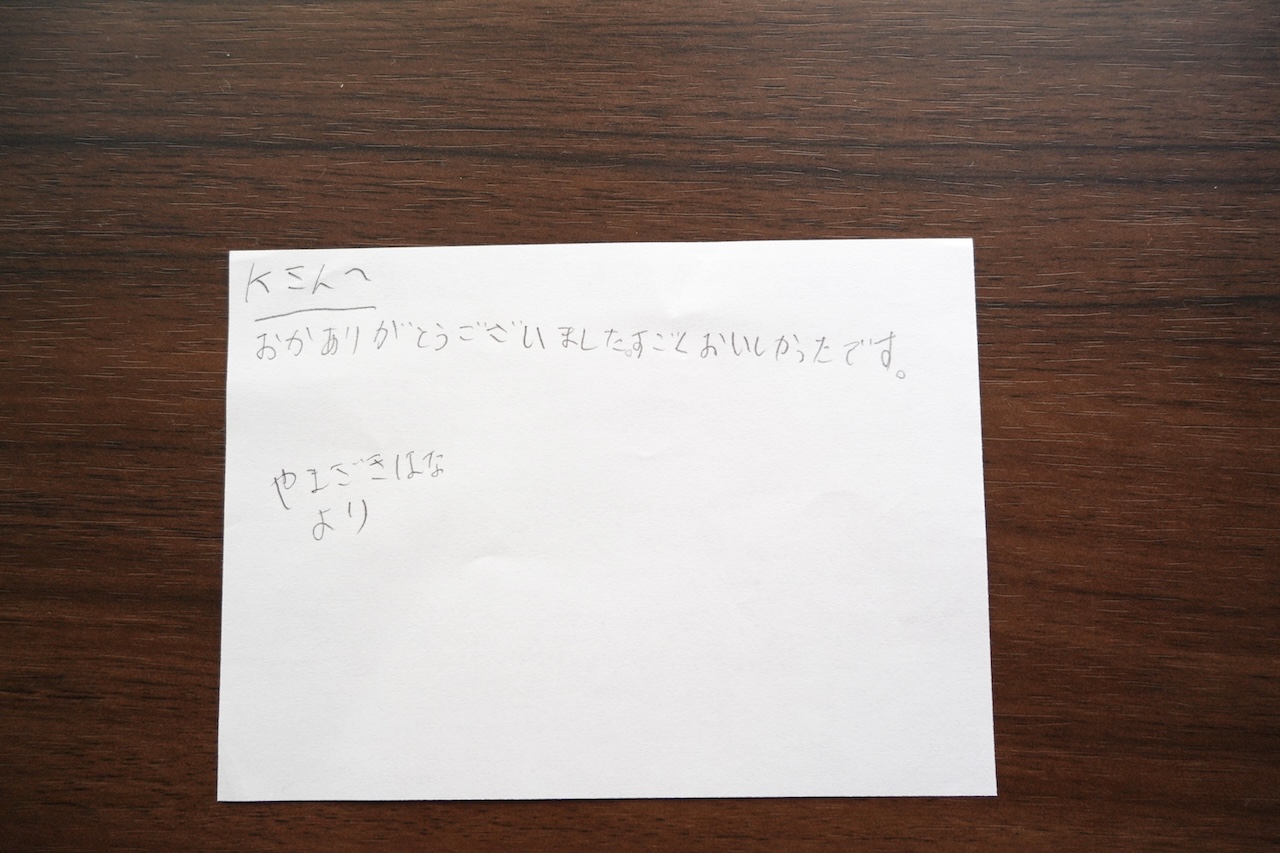 Kさんへ
おかありがとうございました。すごくおいしかったです。
やまざきはな
より